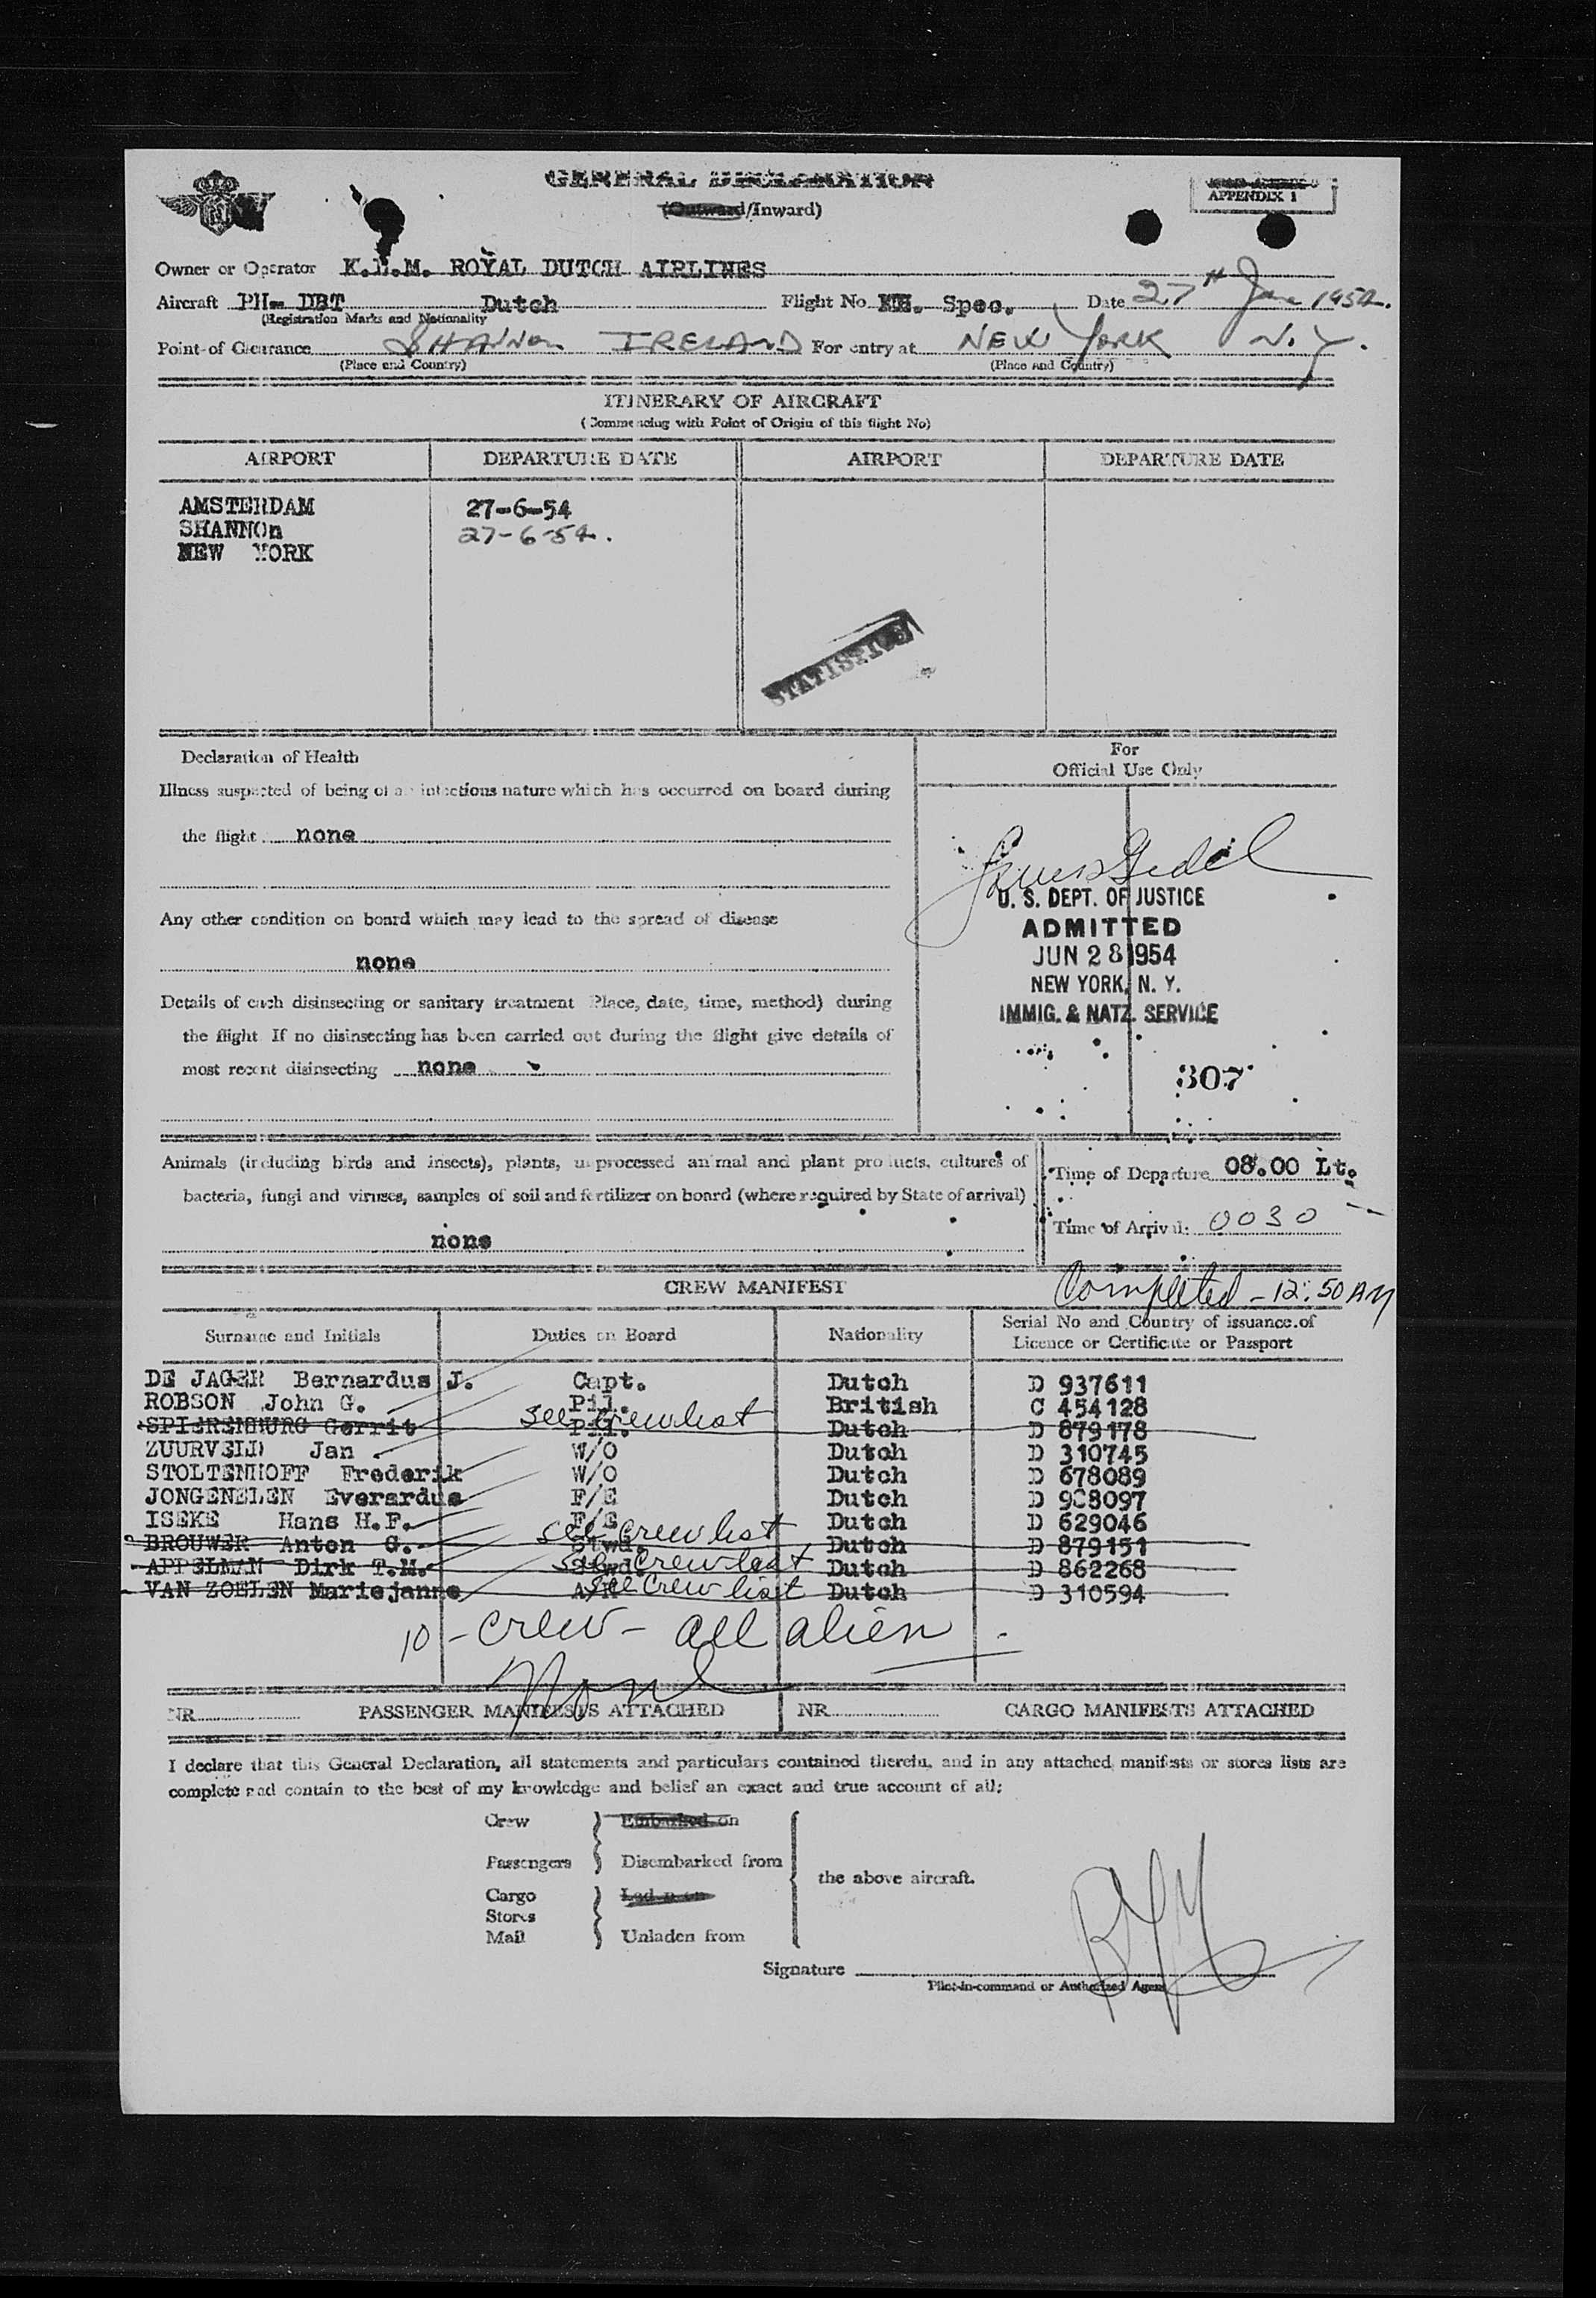 GENERAL DECLARATION
(Outward/Inward)
APPENDIX 1
Owner or Operator K.L.M. ROYAL DUTCH AIRLINES
Aircraft PH- DBT Dutch Flight No Spec. Date 27th June 1954.
(Registration Marks and Nationality
Point of Clearance SHANNON IRELAND For entry at NEW YORK N.Y.
(Place and Country) (Place and Country)
ITINERARY OF AIRCRAFT
(Commencing with Point of Origin of this flight No)
AIRPORT DEPARTURE DATE AIRPORT DEPARTURE DATE
AMSTERDAM 27-6-54
SHANNOn 27-6-54.
NEW YORK
STATISTICS
Declaration of Health
For
Official Use Only
Illness suspected of being of an infectious nature which has occurred on board during
the flight none
Any other condition on board which may lead to the spread of disease
none
Details of each disinsecting or sanitary treatment Place, date, time, method) during
the flight If no disinsecting has been carried out during the flight give details of
most recent disinsecting none
U. S. DEPT. OF JUSTICE
ADMITTED
JUN 28 1954
NEW YORK, N. Y.
IMMIG. & NATZ. SERVICE
307
Animals (including birds and insects), plants, unprocessed animal and plant products, cultures of
bacteria, fungi and viruses, samples of soil and fertilizer on board (where required by State of arrival)
none
Time of Departure 08.00 Lt.
Time of Arrival: 0030
CREW MANIFEST
Completed - 12:50 AM
Surname and Initials Duties on Board Nationality Serial No and Country of issuance of
Licence or Certificate or Passport
DE JAGER Bernardus J. Capt. Dutch D 937611
ROBSON John G. Pil. British C 454128
SPIERENBURG Gerrit Pil. see crew list Dutch D 879178
ZUURVELD Jan W/O Dutch D 310745
STOLTENHOFF Frederik W/O Dutch D 678089
JONGENELEN Everardus F/E Dutch D 908097
ISEKE Hans H.F. F/E Dutch D 629046
BROUWER Anton G. Stwd. see crew list Dutch D 879151
APPELMAN Dirk T.M. Stwd. see crew list Dutch D 862268
VAN ZOELEN Mariejanne see crew list Dutch D 310594
10 - crew - all alien.
None
NR PASSENGER MANIFESTS ATTACHED NR CARGO MANIFESTS ATTACHED
I declare that this General Declaration, all statements and particulars contained therein, and in any attached manifests or stores lists are
complete and contain to the best of my knowledge and belief an exact and true account of all:
Crew Embarked on
Passengers Disembarked from
the above aircraft.
Cargo Laden on
Stores
Mail Unladen from
Signature
Pilot-in-command or Authorized Agent